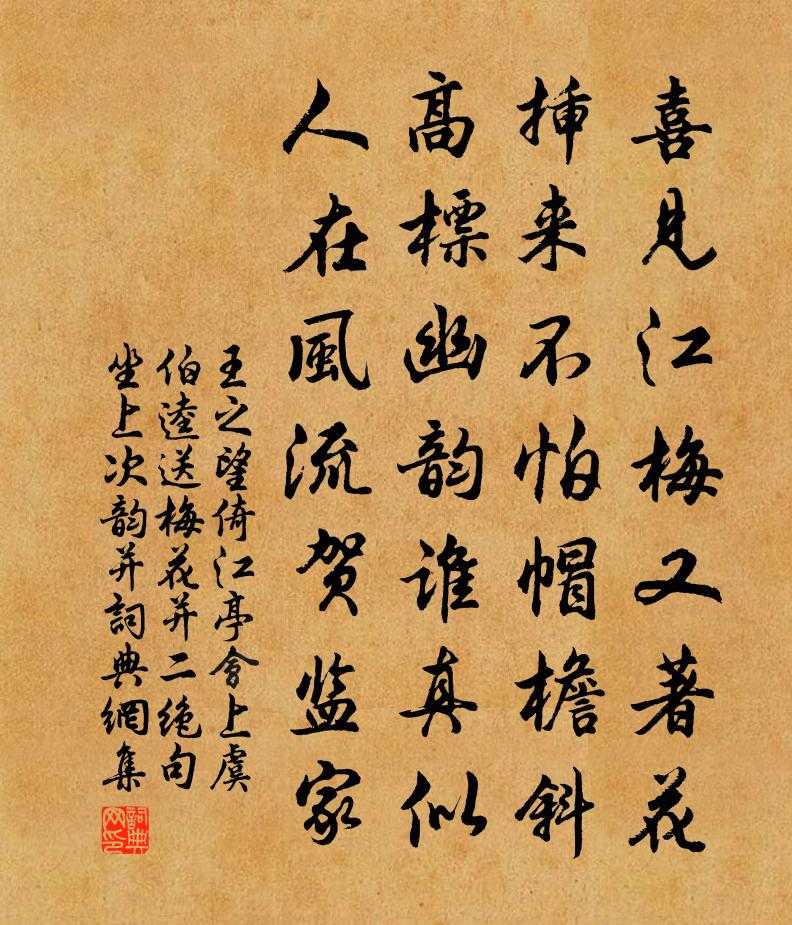 喜見江梅又著花
挿来不怕帽檐斜
高標幽韵誰真似
人在風流贺监家
王之望倚江亭會上虞
伯逵送梅花并二绝句
坐上次韵并詞典網集
詞典网印